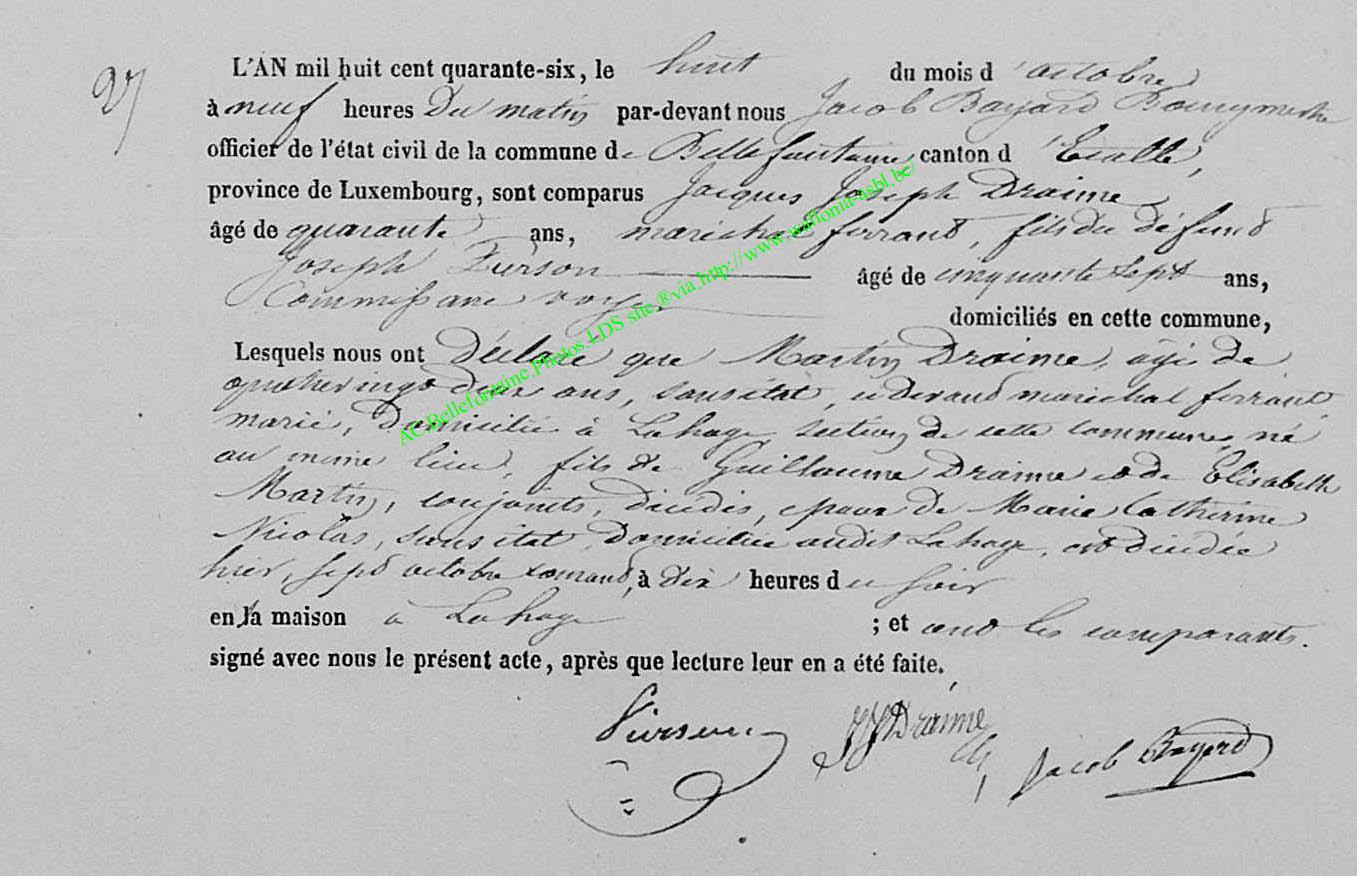 27
L'AN mil huit cent quarante-six, le huit du mois d'octobre
à neuf heures Du matin par-devant nous Jacob Bayard Bourgmestre
officier de l'état civil de la commune de Bellefontaine, canton d'Etalle,
province de Luxembourg, sont comparus Jacques Joseph Draime
âgé de quarante ans, maréchal ferrant, fils du défunt
Joseph âgé de cinquante sept ans,
Commissaire voyer domiciliés en cette commune,
Lesquels nous ont Déclaré que Martin Draime, agé de
quatrevingt deux ans, sans état, cidevant maréchal ferrant,
marié, Domicilié à Lahage section de cette commune, né
au même lieu, fils de Guillaume Draime et de Elisabeth
Martin, conjoints, décédés, epoux de Marie Catherine
Nicolas, sans état, Domiciliée audit Lahage, est décédé
hier, sept octobre courant, à dix heures du soir
en la maison à Lahage ; et ont les comparants
signé avec nous le présent acte, après que lecture leur en a été faite.
JJ Draime
Jacob Bayard
AC.Bellefontaine.Photos.LDS site.®via.http://www.wallonia-asbl.be/